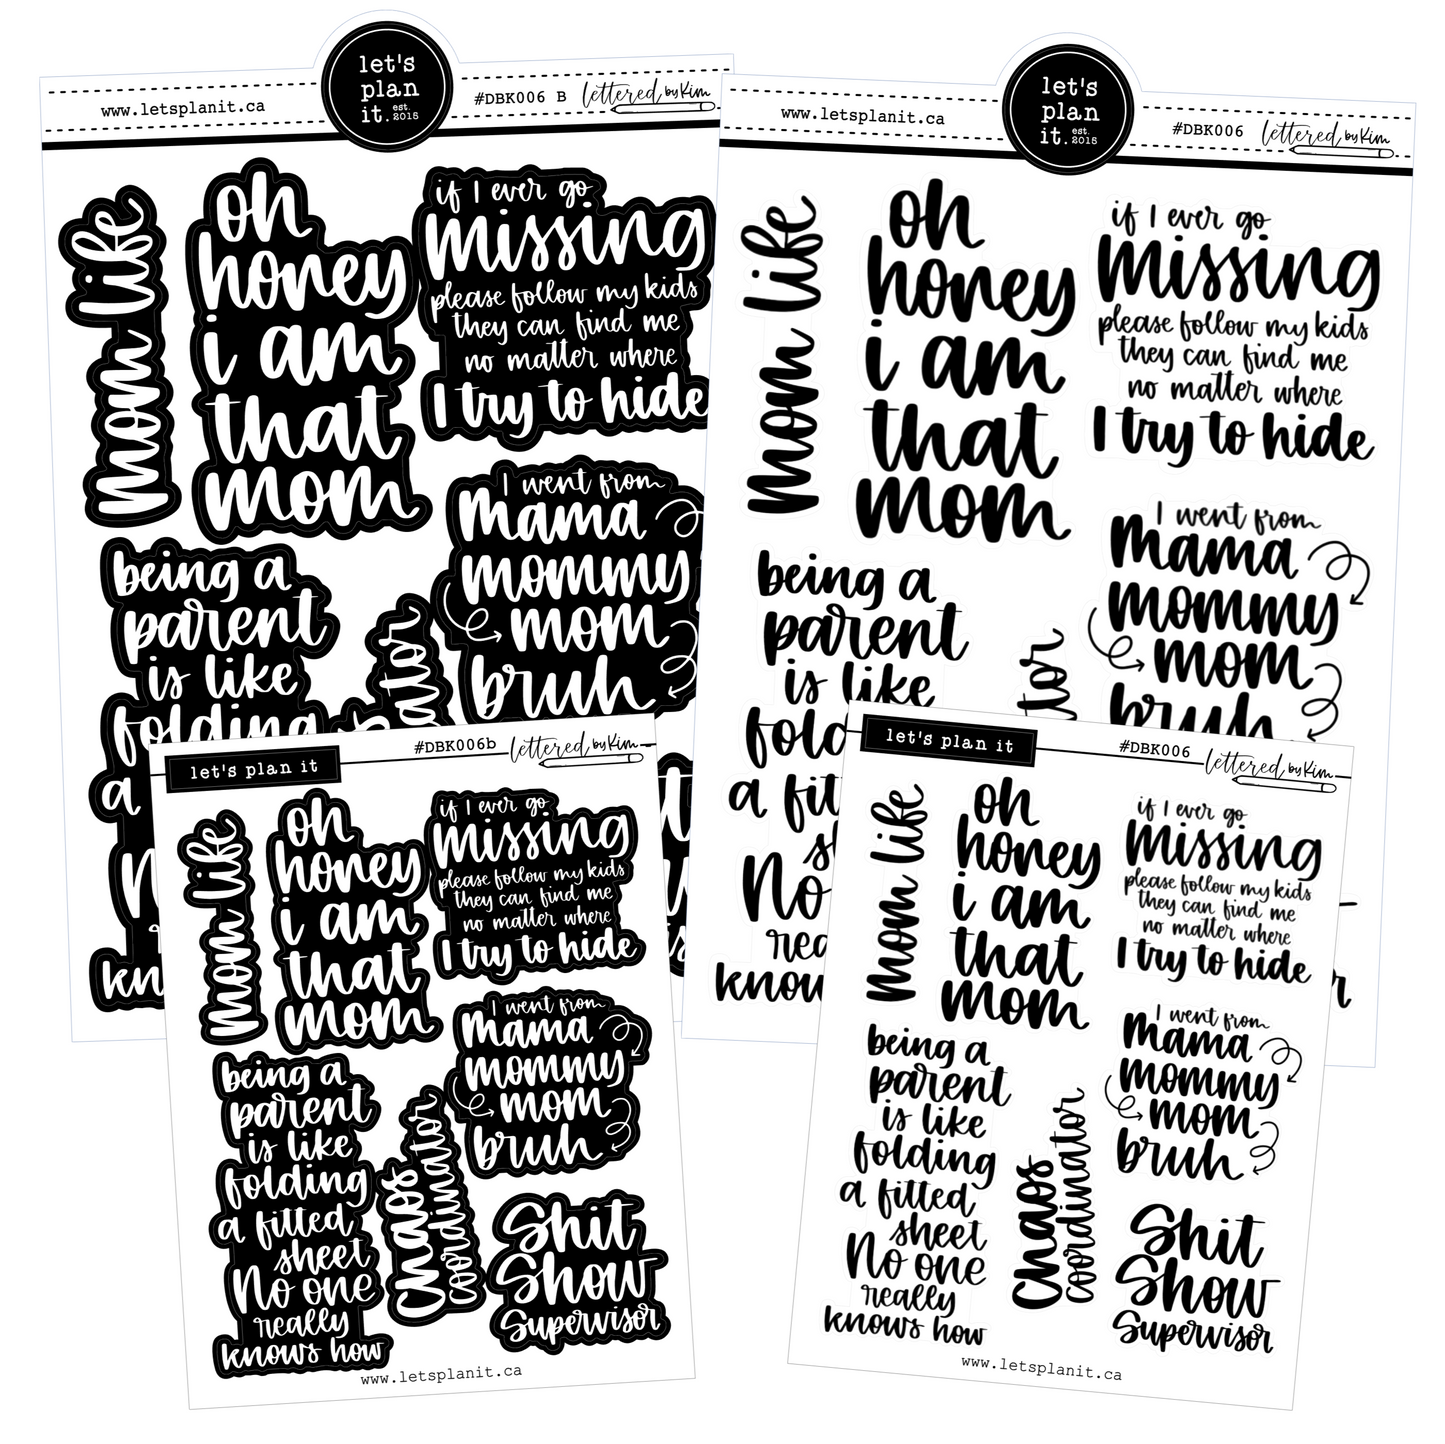 let's
plan
it.
est.
2015
www.letsplanit.ca
#DBK006 B
lettered by Kim
mom life
oh
honey
i am
that
mom
if I ever go
missing
please follow my kids
they can find me
no matter where
I try to hide
I went from
mama
mommy
mom
bruh
being a
parent
is like
folding
a
kn
let's
plan
it.
est.
2015
www.letsplanit.ca
#DBK006
lettered by Kim
mom life
oh
honey
i am
that
mom
if I ever go
missing
please follow my kids
they can find me
no matter where
I try to hide
I went from
mama
mommy
mom
bruh
being a
parent
is like
fold
a fit
sh
No
rea
know
let's plan it
#DBK006b
lettered by Kim
mom life
oh
honey
i am
that
mom
if I ever go
missing
please follow my kids
they can find me
no matter where
I try to hide
I went from
mama
mommy
mom
bruh
being a
parent
is like
folding
a fitted
sheet
No one
really
knows how
Chaos
coordinator
Shit
Show
Supervisor
www.letsplanit.ca
let's plan it
#DBK006
lettered by Kim
mom life
oh
honey
i am
that
mom
if I ever go
missing
please follow my kids
they can find me
no matter where
I try to hide
I went from
mama
mommy
mom
bruh
being a
parent
is like
folding
a fitted
sheet
No one
really
knows how
Chaos
coordinator
Shit
Show
Supervisor
www.letsplanit.ca